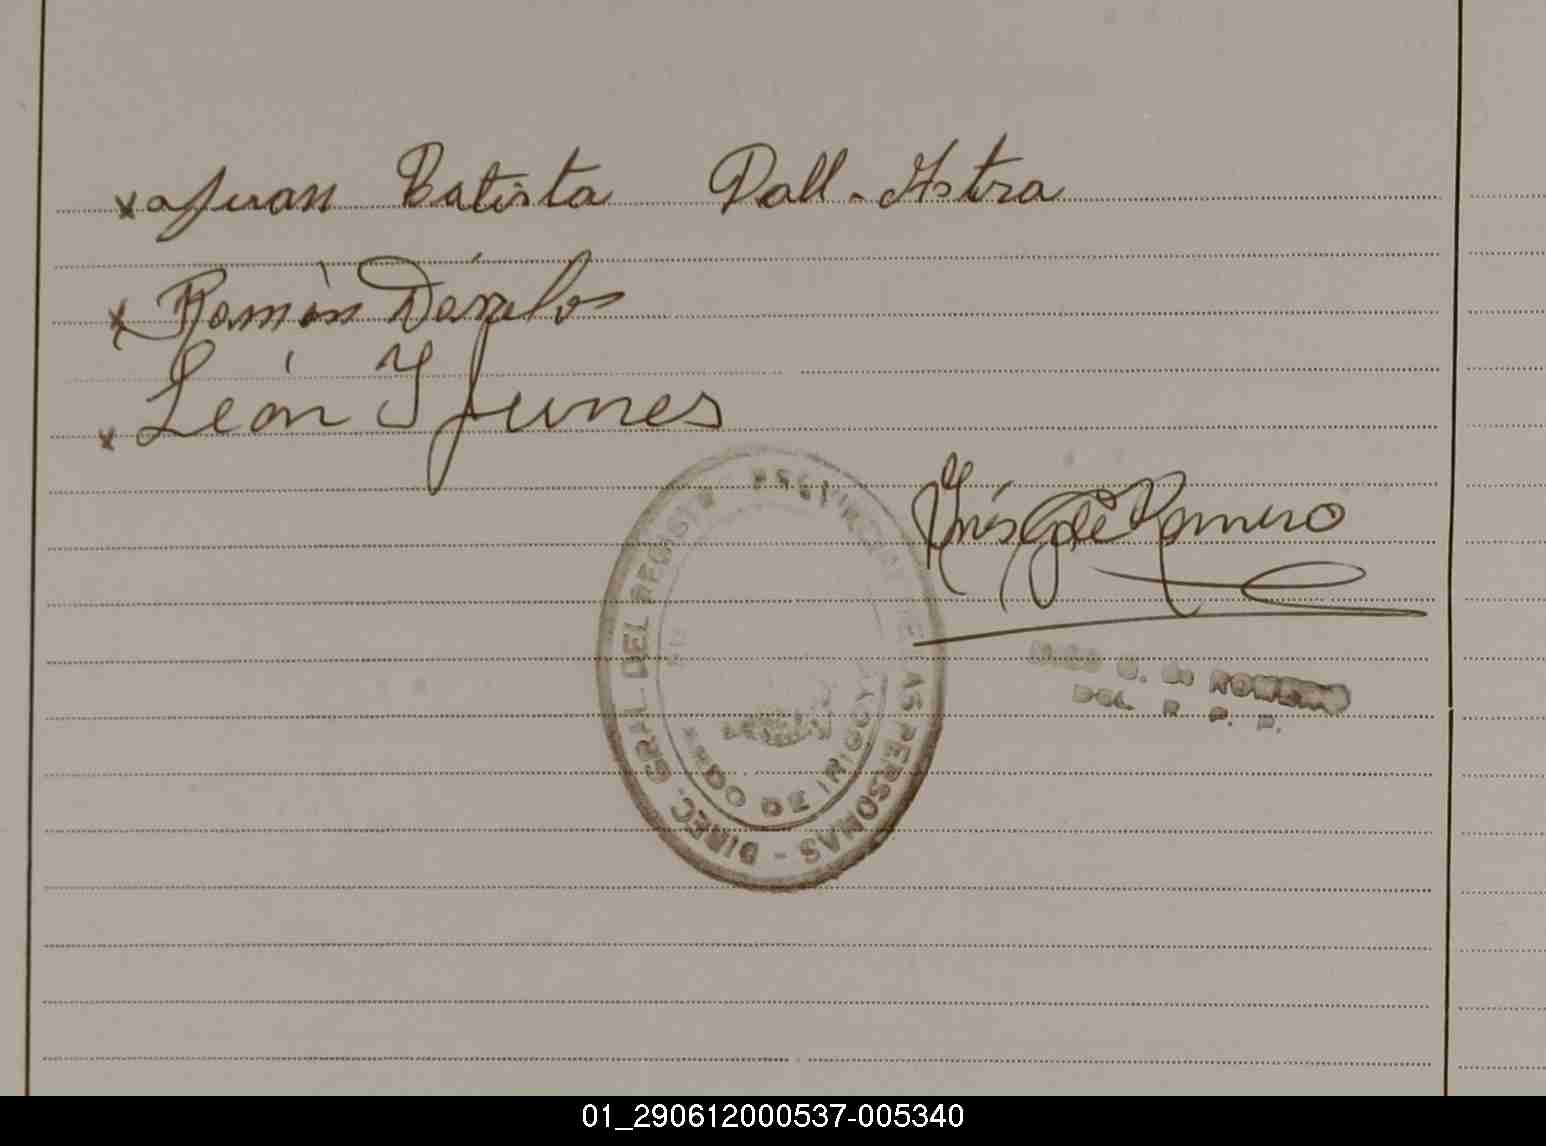 x Juan Batista Dall-Astra
x Román Dávalos
x León Y Funes
Inés G de Romero
DIREC. GRAL DEL REGISTRO PROVINCIAL DE LAS PERSONAS -
DE IRIGOYEN
DE ROMERO
DEL. R. P. P.
01_290612000537-005340